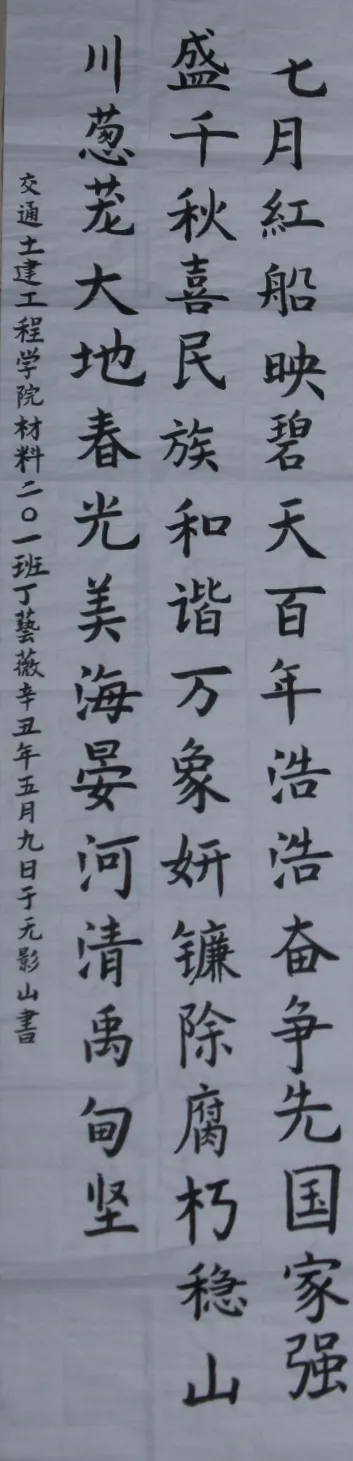 七月紅船映碧天百年浩浩奋争先国家强
盛千秋喜民族和谐万象妍镰除腐朽稳山
川葱茏大地春光美海晏河清禹甸坚
交通土建工程学院材料二〇一班丁藝薇辛丑年五月九日于无影山書